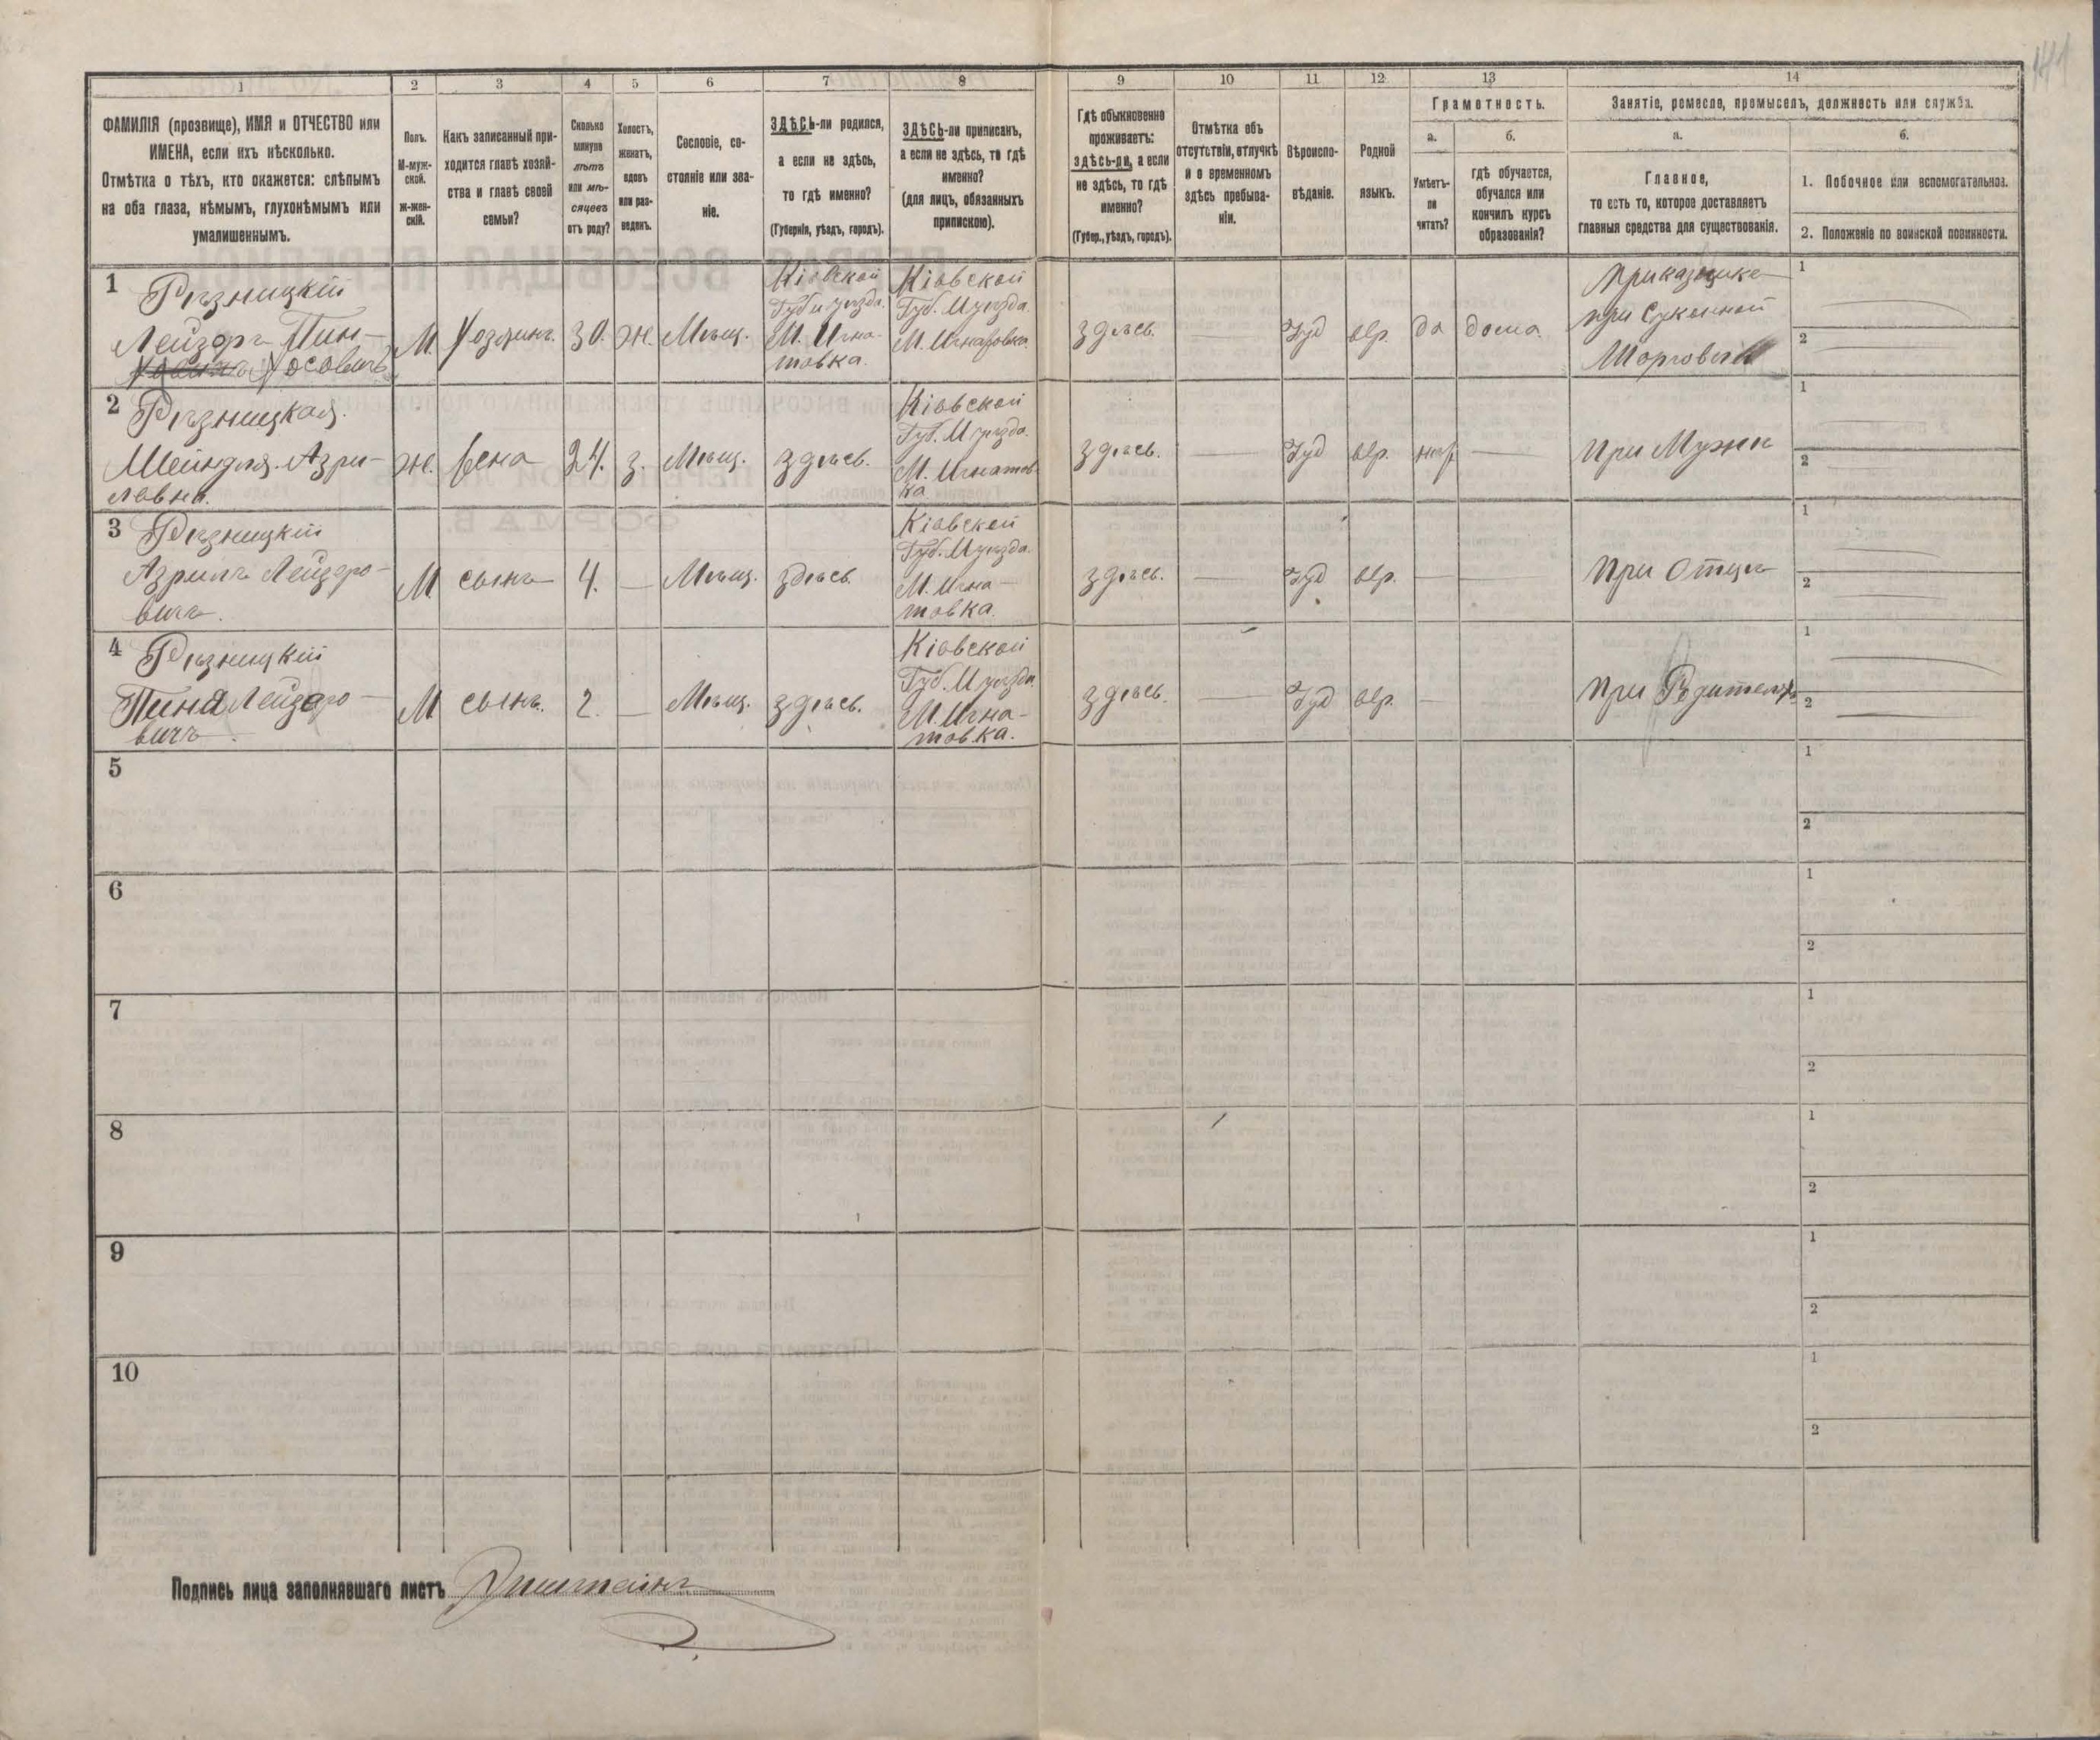 141
1 2 3 4 5 6 7 8 9 10 11 12 13 14
ФАМИЛІЯ (прозвище), ИМЯ и ОТЧЕСТВО или
ИМЕНА, если ихъ нѣсколько.
Отмѣтка о тѣхъ, кто окажется: слѣпымъ
на оба глаза, нѣмымъ, глухонѣмымъ или
умалишеннымъ.
Полъ.
М-муж-
ской.
ж-жен-
скій.
Какъ записанный при-
ходится главѣ хозяй-
ства и главѣ своей
семьи?
Сколько
минуло
лѣтъ
или мѣ-
сяцевъ
отъ роду?
Холостъ,
женатъ,
вдовъ
или раз-
веденъ.
Сословіе, со-
стояніе или зва-
ніе.
ЗДѢСЬ-ли родился,
а если не здѣсь,
то гдѣ именно?
(Губернія, уѣздъ, городъ).
ЗДѢСЬ-ли приписанъ,
а если не здѣсь, то гдѣ
именно?
(для лицъ, обязанныхъ
припискою).
Гдѣ обыкновенно
проживаетъ:
здѣсь-ли, а если
не здѣсь, то гдѣ
именно?
(Губер., уѣздъ, городъ).
Отмѣтка объ
отсутствіи, отлучкѣ
и о временномъ
здѣсь пребыва-
ніи.
Вѣроиспо-
вѣданіе.
Родной
языкъ.
Грамотность.
а.
Умѣетъ-
ли
читать?
б.
гдѣ обучается,
обучался или
кончилъ курсъ
образованія?
Занятіе, ремесло, промыселъ, должность или служба.
а.
Главное,
то есть то, которое доставляетъ
главныя средства для существованія.
б.
1. Побочное или вспомогательное.
2. Положеніе по воинской повинности.
1
Рѣзницкій
Лейзоръ Пин-
Іосовичъ
М.
Хозяинъ.
30.
ж.
Мѣщ.
Кіовской
Губ и уѣзда.
М. Игна-
товка.
Кіовской
Губ. И уѣзда.
М. Игнатовка.
здѣсь.
Іуд
евр.
да
дома.
Приказщике
при Суконной
Торговли
1
2
2
Рѣзницкая.
Шейндля. Азри-
ловна.
ж.
жена
24.
з.
Мѣщ.
здѣсь.
Кіовской
Губ. И уѣзда.
М. Игнатов-
ка.
здѣсь.
Іуд
евр.
нѣт
При Мужи
1
2
3
Рѣзницкій
Азрилъ Лейзеро-
вичъ.
М.
сынъ
4.
Мѣщ.
здѣсь.
Кіовской
Губ. И уѣзда.
М. Игна-
товка.
здѣсь.
Іуд
евр.
При Отци
1
2
4
Рѣзницкій
Лейзеро-
вичъ.
М
сынъ.
2.
Мѣщ.
здѣсь.
Кіовской
Губ. И уѣзда.
М. Игна-
товка.
здѣсь.
Іуд
евр.
При Родителяхъ
1
2
5
1
2
6
1
2
7
1
2
8
1
2
9
1
2
10
1
2
Подпись лица заполнявшаго листъ